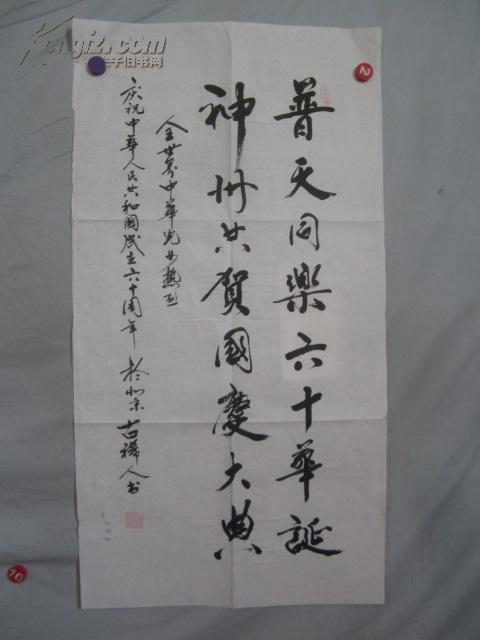 普天同樂六十華誕
神州共賀國慶大典
全世界中華兒女熱烈
庆祝中華人民共和國成立六十周年 於北京 古稀人书
2
10
Kongfz.com
孔夫子旧书网